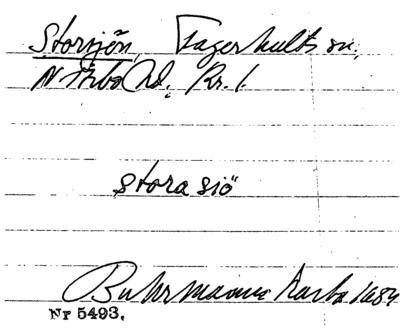 Storsjön, Fagerhults sn,
N Åsbo hd. Kr. l.
stora siö
Buhrmanns karta 1684
Nr 5493.